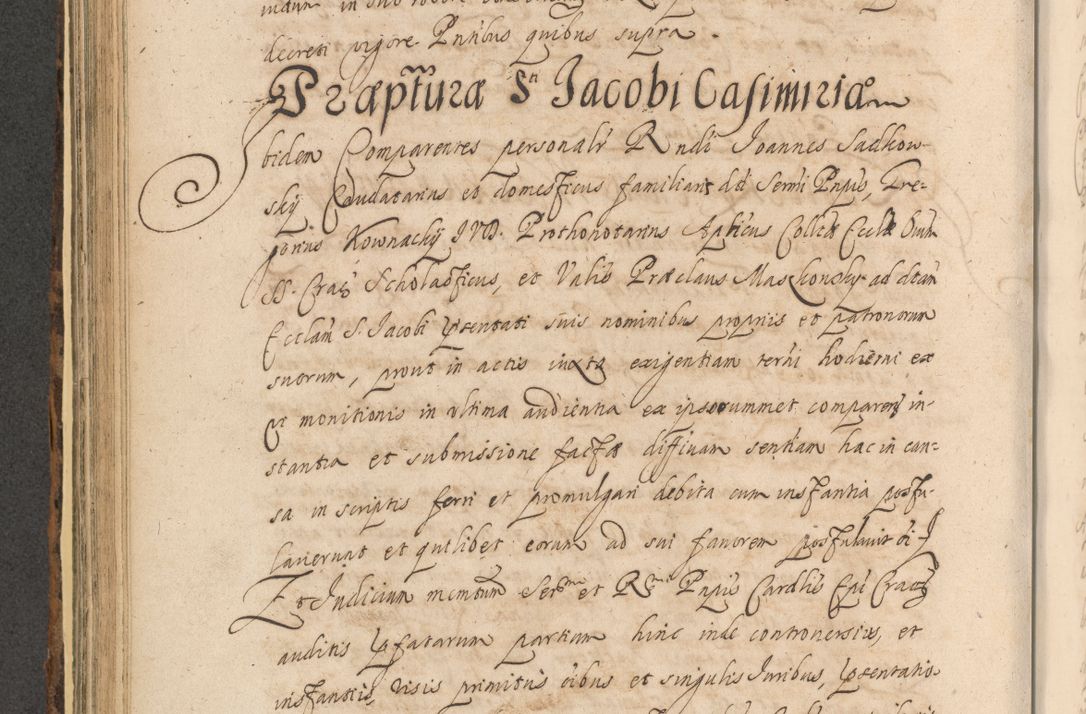 decreti vigore Pntibus quibus supra.
Præpturæ Sti Jacobi Casimiriæ
Ibidem Comparentes personalr Rndi Joannes Sadkow-
sky Caudatarius et domesticus familiaris dti Sermi Pnpis, Gre-
gorius Kownachy JVD. Prothonotarius Aplicus Collæ Eccle Omn
SS. Crac Scholasticus, et Valis Praeclaus Maskonsky ad dtam
Ecclam S. Jacobi psentati suis nominibus proprijs et patronorum
suorum, prout in actis iuxta exigentiam termi hodierni ex
et monitionis in vltima audientia ex ipsorummet comparen in-
stantia et submissione factæ diffiuam sentiam hac in cau-
sa in scriptis ferri et promulgari debita cum instantia postu-
lauerunt et qutlibet eorum ad sui fauorem postulauit di-
Et Judicium memtum Sermi et Rmi Pnpis Cardlis Epi Crac
auditis pfatarum partium hinc inde controuersijs, et
instantijs, visis primitus oibus et singulis Juribus, psentatis